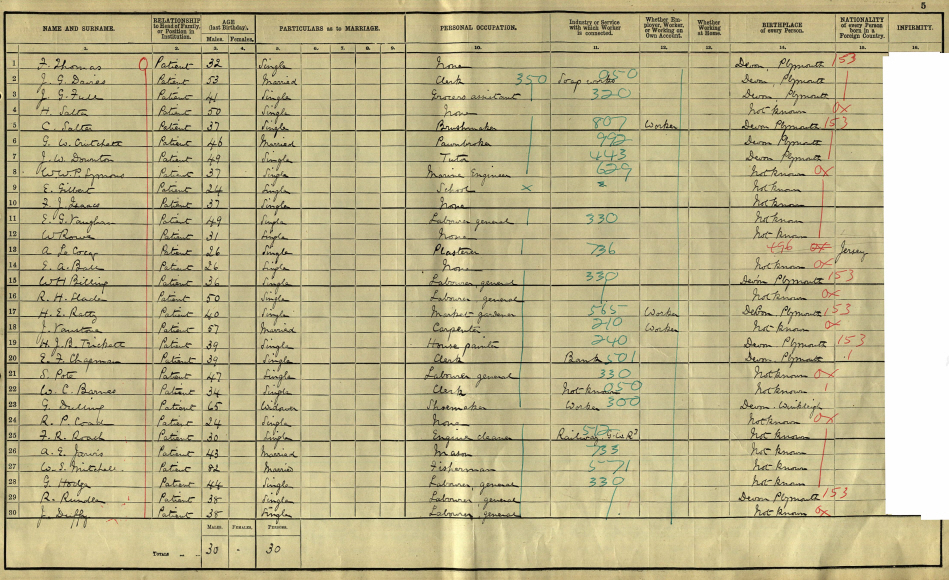 5
NAME AND SURNAME. RELATIONSHIP to Head of Family, or Position in Institution. AGE (last Birthday). PARTICULARS as to MARRIAGE. PERSONAL OCCUPATION. Industry or Service with which Worker is connected. Whether Employer, Worker, or Working on Own Account. Whether Working at Home. BIRTHPLACE of every Person. NATIONALITY of every Person born in a Foreign Country. INFIRMITY.
Males. Females.
1. 2. 3. 4. 5. 6. 7. 8. 9. 10. 11. 12. 13. 14. 15. 16.
1 F. Thomas Patient 32 Single None Devon Plymouth 153
2 J. G. Davies Patient 53 Married Clerk 350 Soap works 050 Devon Plymouth
3 J. G. Full Patient 41 Single Grocers assistant 320 Devon Plymouth
4 H. Salter Patient 50 Single None Not known 0x
5 C. Salter Patient 37 Single Brushmaker 807 Worker Devon Plymouth 153
6 G. W. Patient 46 Married Pawnbroker 992 Devon Plymouth
7 J. W. Downton Patient 49 Single Tutor 443 Devon Plymouth
8 W. W. P. Symons Patient 37 Single Marine Engineer 629 Not known 0x
9 E. Gilbert Patient 24 Single School x Not known
10 F. J. Isaacs Patient 37 Single None Not known
11 E. G. Vaughan Patient 49 Single Labourer general 330 Not known
12 W Rowe Patient 31 Single None Not known
13 A. Le Patient 26 Single Plasterer 736 496 0x Jersey
14 E. A. Ball Patient 26 Single None Not known 0x
15 W H Billing Patient 36 Single Labourer, general 330 Devon Plymouth 153
16 R. H. Patient 50 Single Labourer, general Not known 0x
17 H. E. Patient 40 Single Market gardener 565 Worker Devon Plymouth 153
18 J. Patient 57 Married Carpenter 210 Worker Not known 0x
19 H. J. B. Trickett Patient 39 Single House painter 240 Devon Plymouth 153
20 E. F. Chapman Patient 39 Single Clerk Bank 501 Devon Plymouth
21 S. Pote Patient 47 Single Labourer general 330 Not known 0x
22 W. C. Barnes Patient 34 Single Clerk Not known 050 Not known
23 G. Patient 65 Widower Shoemaker Worker 300 Devon Winkleigh
24 R. P. Patient 24 Single None Not known 0x
25 F. R. Roach Patient 30 Single Engine cleaner Railway G.W.R. Not known
26 A. E. Jarvis Patient 43 Married Mason 733 Not known
27 W. E. Mitchell Patient 82 Married Fisherman 571 Not known
28 G. Hodge Patient 44 Single Labourer, general 330 Not known
29 R. Rundle Patient 38 Single Labourer, general Devon Plymouth 153
30 J. Duffy Patient 38 Single Labourer, general Not known 0x
MALES. FEMALES. PERSONS.
TOTALS 30 - 30